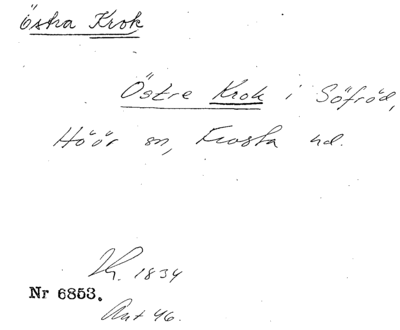 Östra Krok
Östre Krok i Söfröd,
Höör sn, Frosta hd.
1834
Nr 6853.
Ant 46.